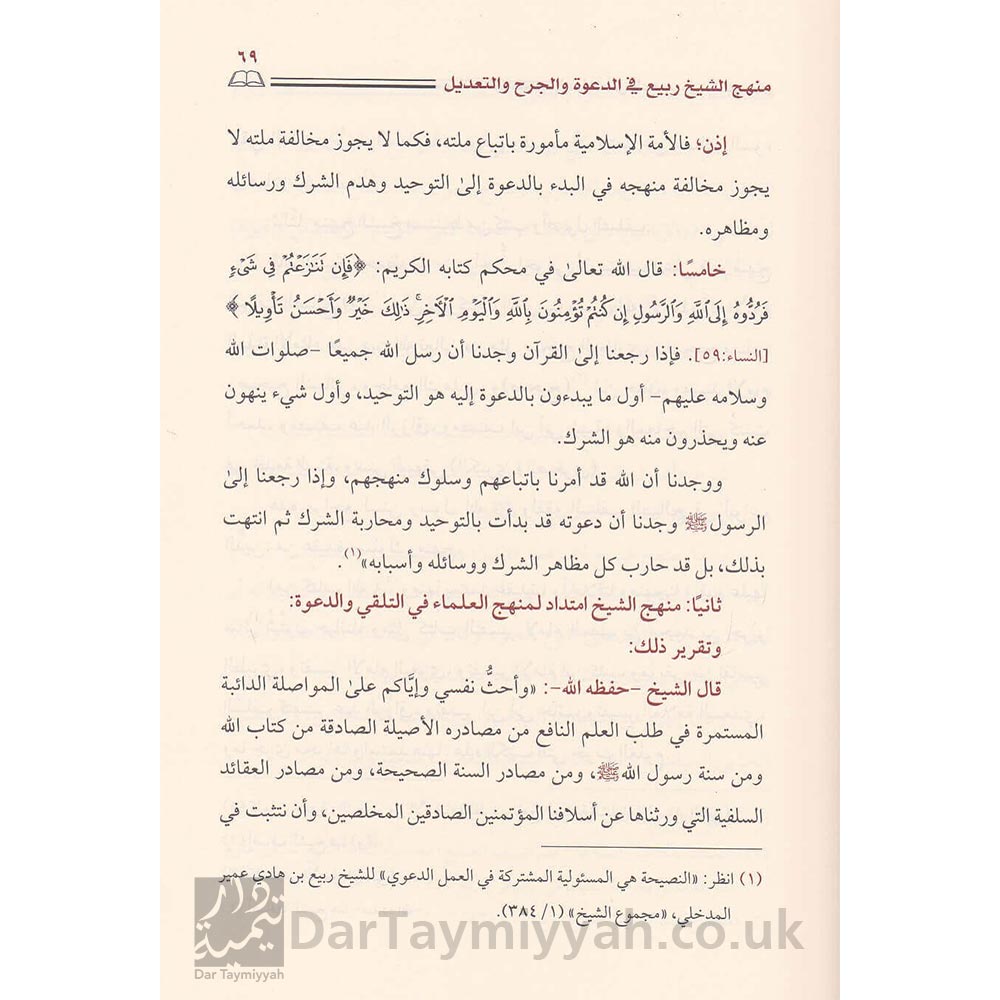 ٦٩
منهج الشيخ ربيع في الدعوة والجرح والتعديل
إذن؛ فالأمة الإسلامية مأمورة باتباع ملته، فكما لا يجوز مخالفة ملته لا
يجوز مخالفة منهجه في البدء بالدعوة إلىٰ التوحيد وهدم الشرك ورسائله
ومظاهره.
خامسًا: قال الله تعالىٰ في محكم كتابه الكريم: ﴿فَإِن تَنَٰزَعۡتُمۡ فِي شَيۡءٖ
فَرُدُّوهُ إِلَى ٱللَّهِ وَٱلرَّسُولِ إِن كُنتُمۡ تُؤۡمِنُونَ بِٱللَّهِ وَٱلۡيَوۡمِ ٱلۡأٓخِرِۚ ذَٰلِكَ خَيۡرٞ وَأَحۡسَنُ تَأۡوِيلًا﴾
[النساء:٥٩]. فإذا رجعنا إلىٰ القرآن وجدنا أن رسل الله جميعًا –صلوات الله
وسلامه عليهم– أول ما يبدءون بالدعوة إليه هو التوحيد، وأول شيء ينهون
عنه ويحذرون منه هو الشرك.
ووجدنا أن الله قد أمرنا باتباعهم وسلوك منهجهم، وإذا رجعنا إلىٰ
الرسول ﷺ وجدنا أن دعوته قد بدأت بالتوحيد ومحاربة الشرك ثم انتهت
بذلك، بل قد حارب كل مظاهر الشرك ووسائله وأسبابه»(١).
ثانيًا: منهج الشيخ امتداد لمنهج العلماء في التلقي والدعوة:
وتقرير ذلك:
قال الشيخ –حفظه الله–: «وأحثُّ نفسي وإيَّاكم علىٰ المواصلة الدائبة
المستمرة في طلب العلم النافع من مصادره الأصيلة الصادقة من كتاب الله
ومن سنة رسول الله ﷺ، ومن مصادر السنة الصحيحة، ومن مصادر العقائد
السلفية التي ورثناها عن أسلافنا المؤتمنين الصادقين المخلصين، وأن نتثبت في
(١) انظر: «النصيحة هي المسئولية المشتركة في العمل الدعوي» للشيخ ربيع بن هادي عمير
المدخلي، «مجموع الشيخ» (١/ ٣٨٤).
دار تيمية
Dar Taymiyyah
DarTaymiyyah.co.uk